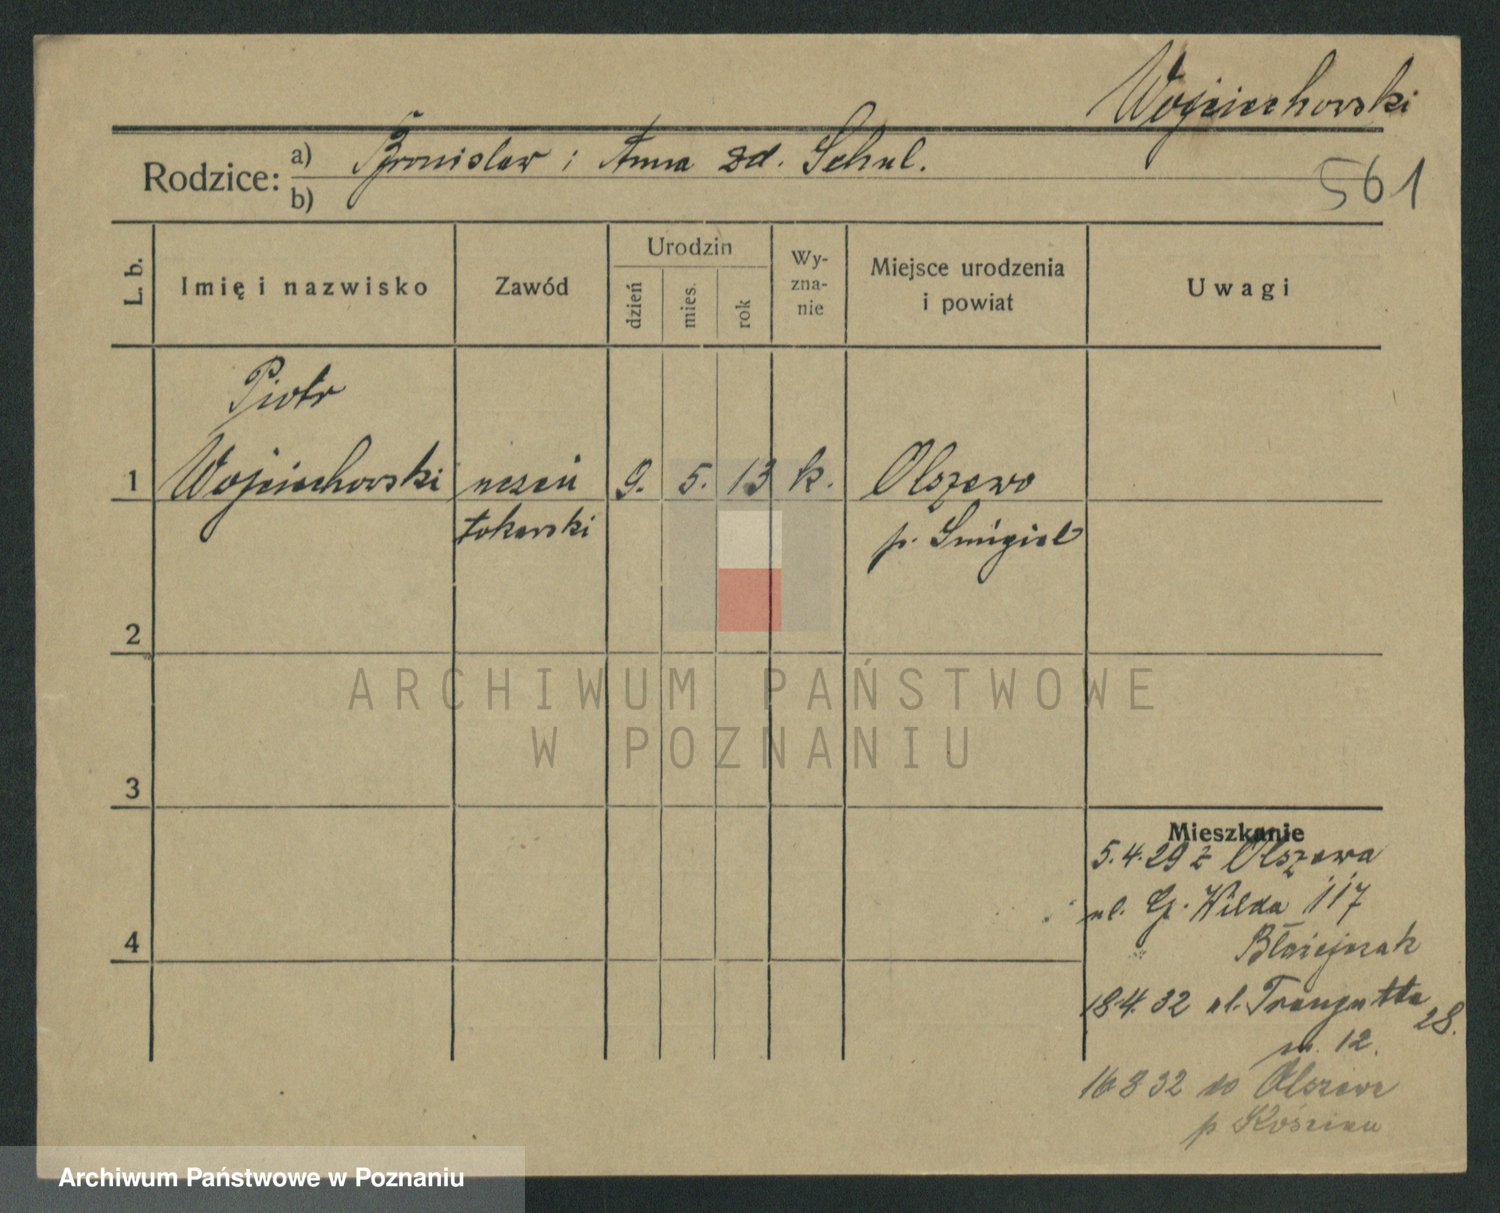 Wojciechowski
Rodzice: a) Bronisław i Anna zd. Schul.
b)
561
L. b.
Imię i nazwisko
Zawód
Urodzin
dzień
mies.
rok
Wy-
zna-
nie
Miejsce urodzenia
i powiat
Uwagi
Piotr
1 Wojciechowski uczeń 9. 5. 13 k. Olszewo
tokarski p. Śmigiel
2
3
4
Mieszkanie
5.4.29 z Olszewa
ul. G. Wilda 117
Błażejczak
18.4.32 ul. Traugutta 28.
m. 12.
16 8 32 do Olszewa
p Kościan
ARCHIWUM PAŃSTWOWE
W POZNANIU
Archiwum Państwowe w Poznaniu